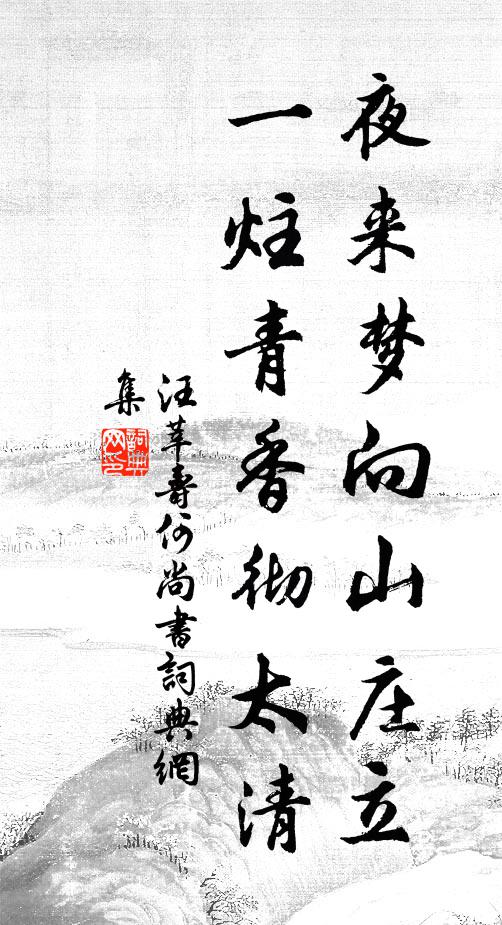 夜来梦向山庄立
一炷青香彻太清
汪莘寿何尚书詞典網
集
詞典
网印